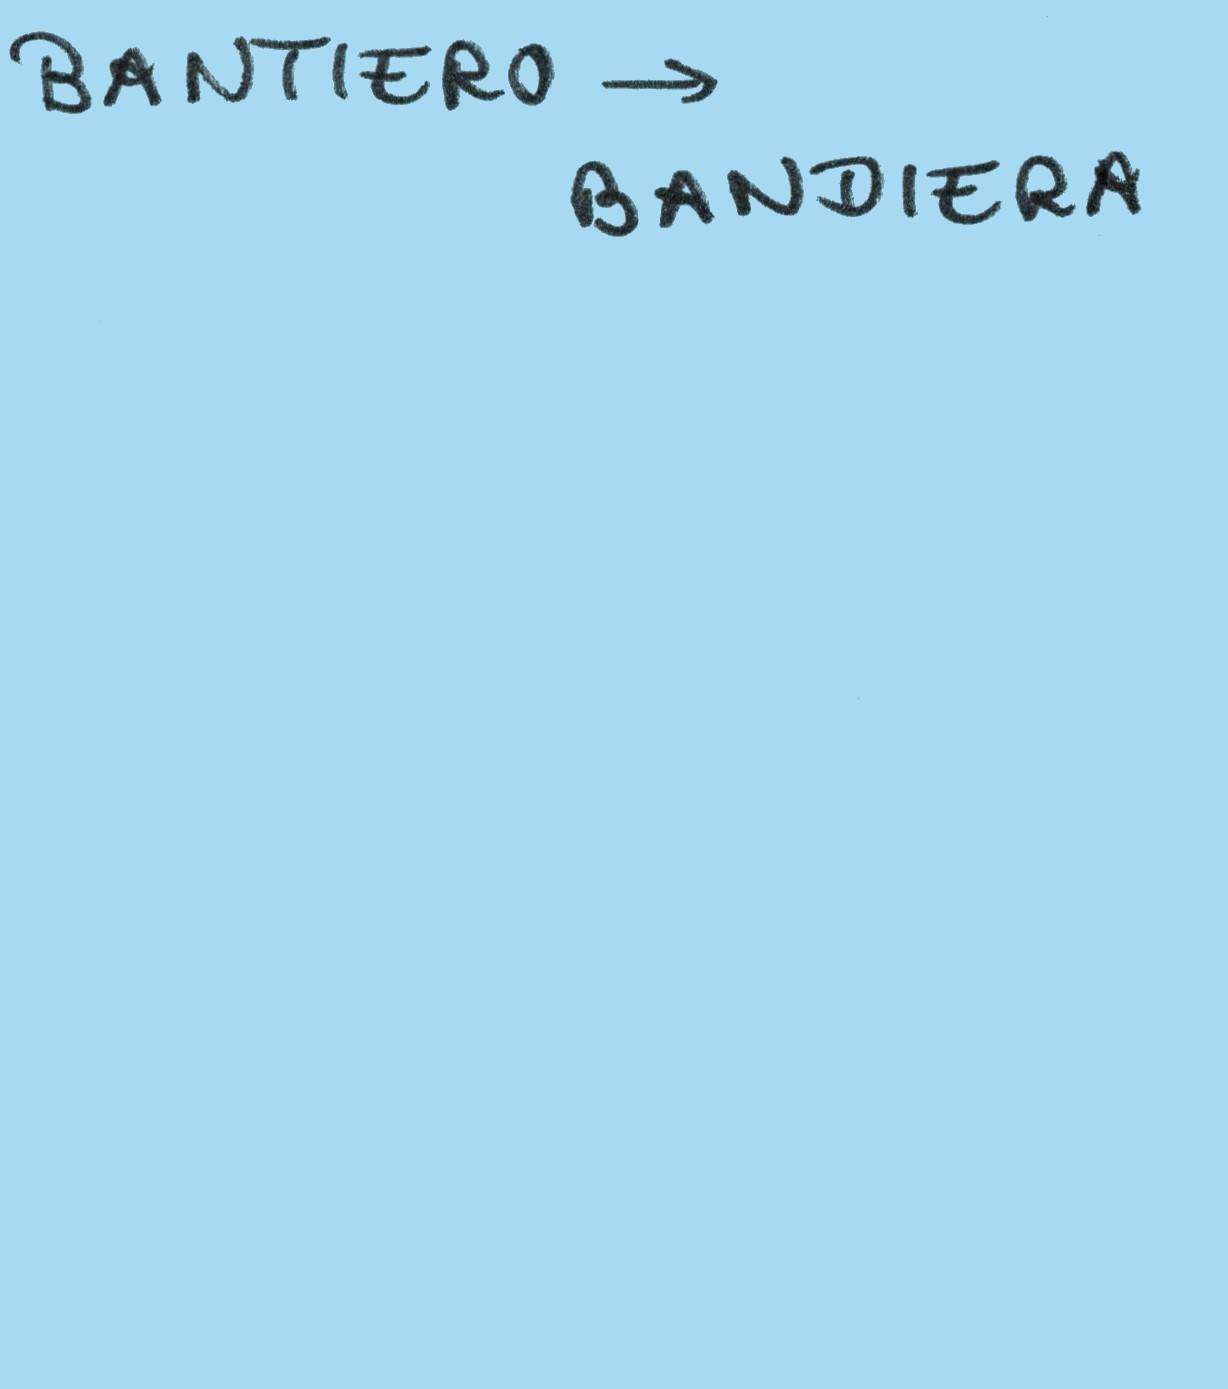 BANTIERO →
BANDIERA